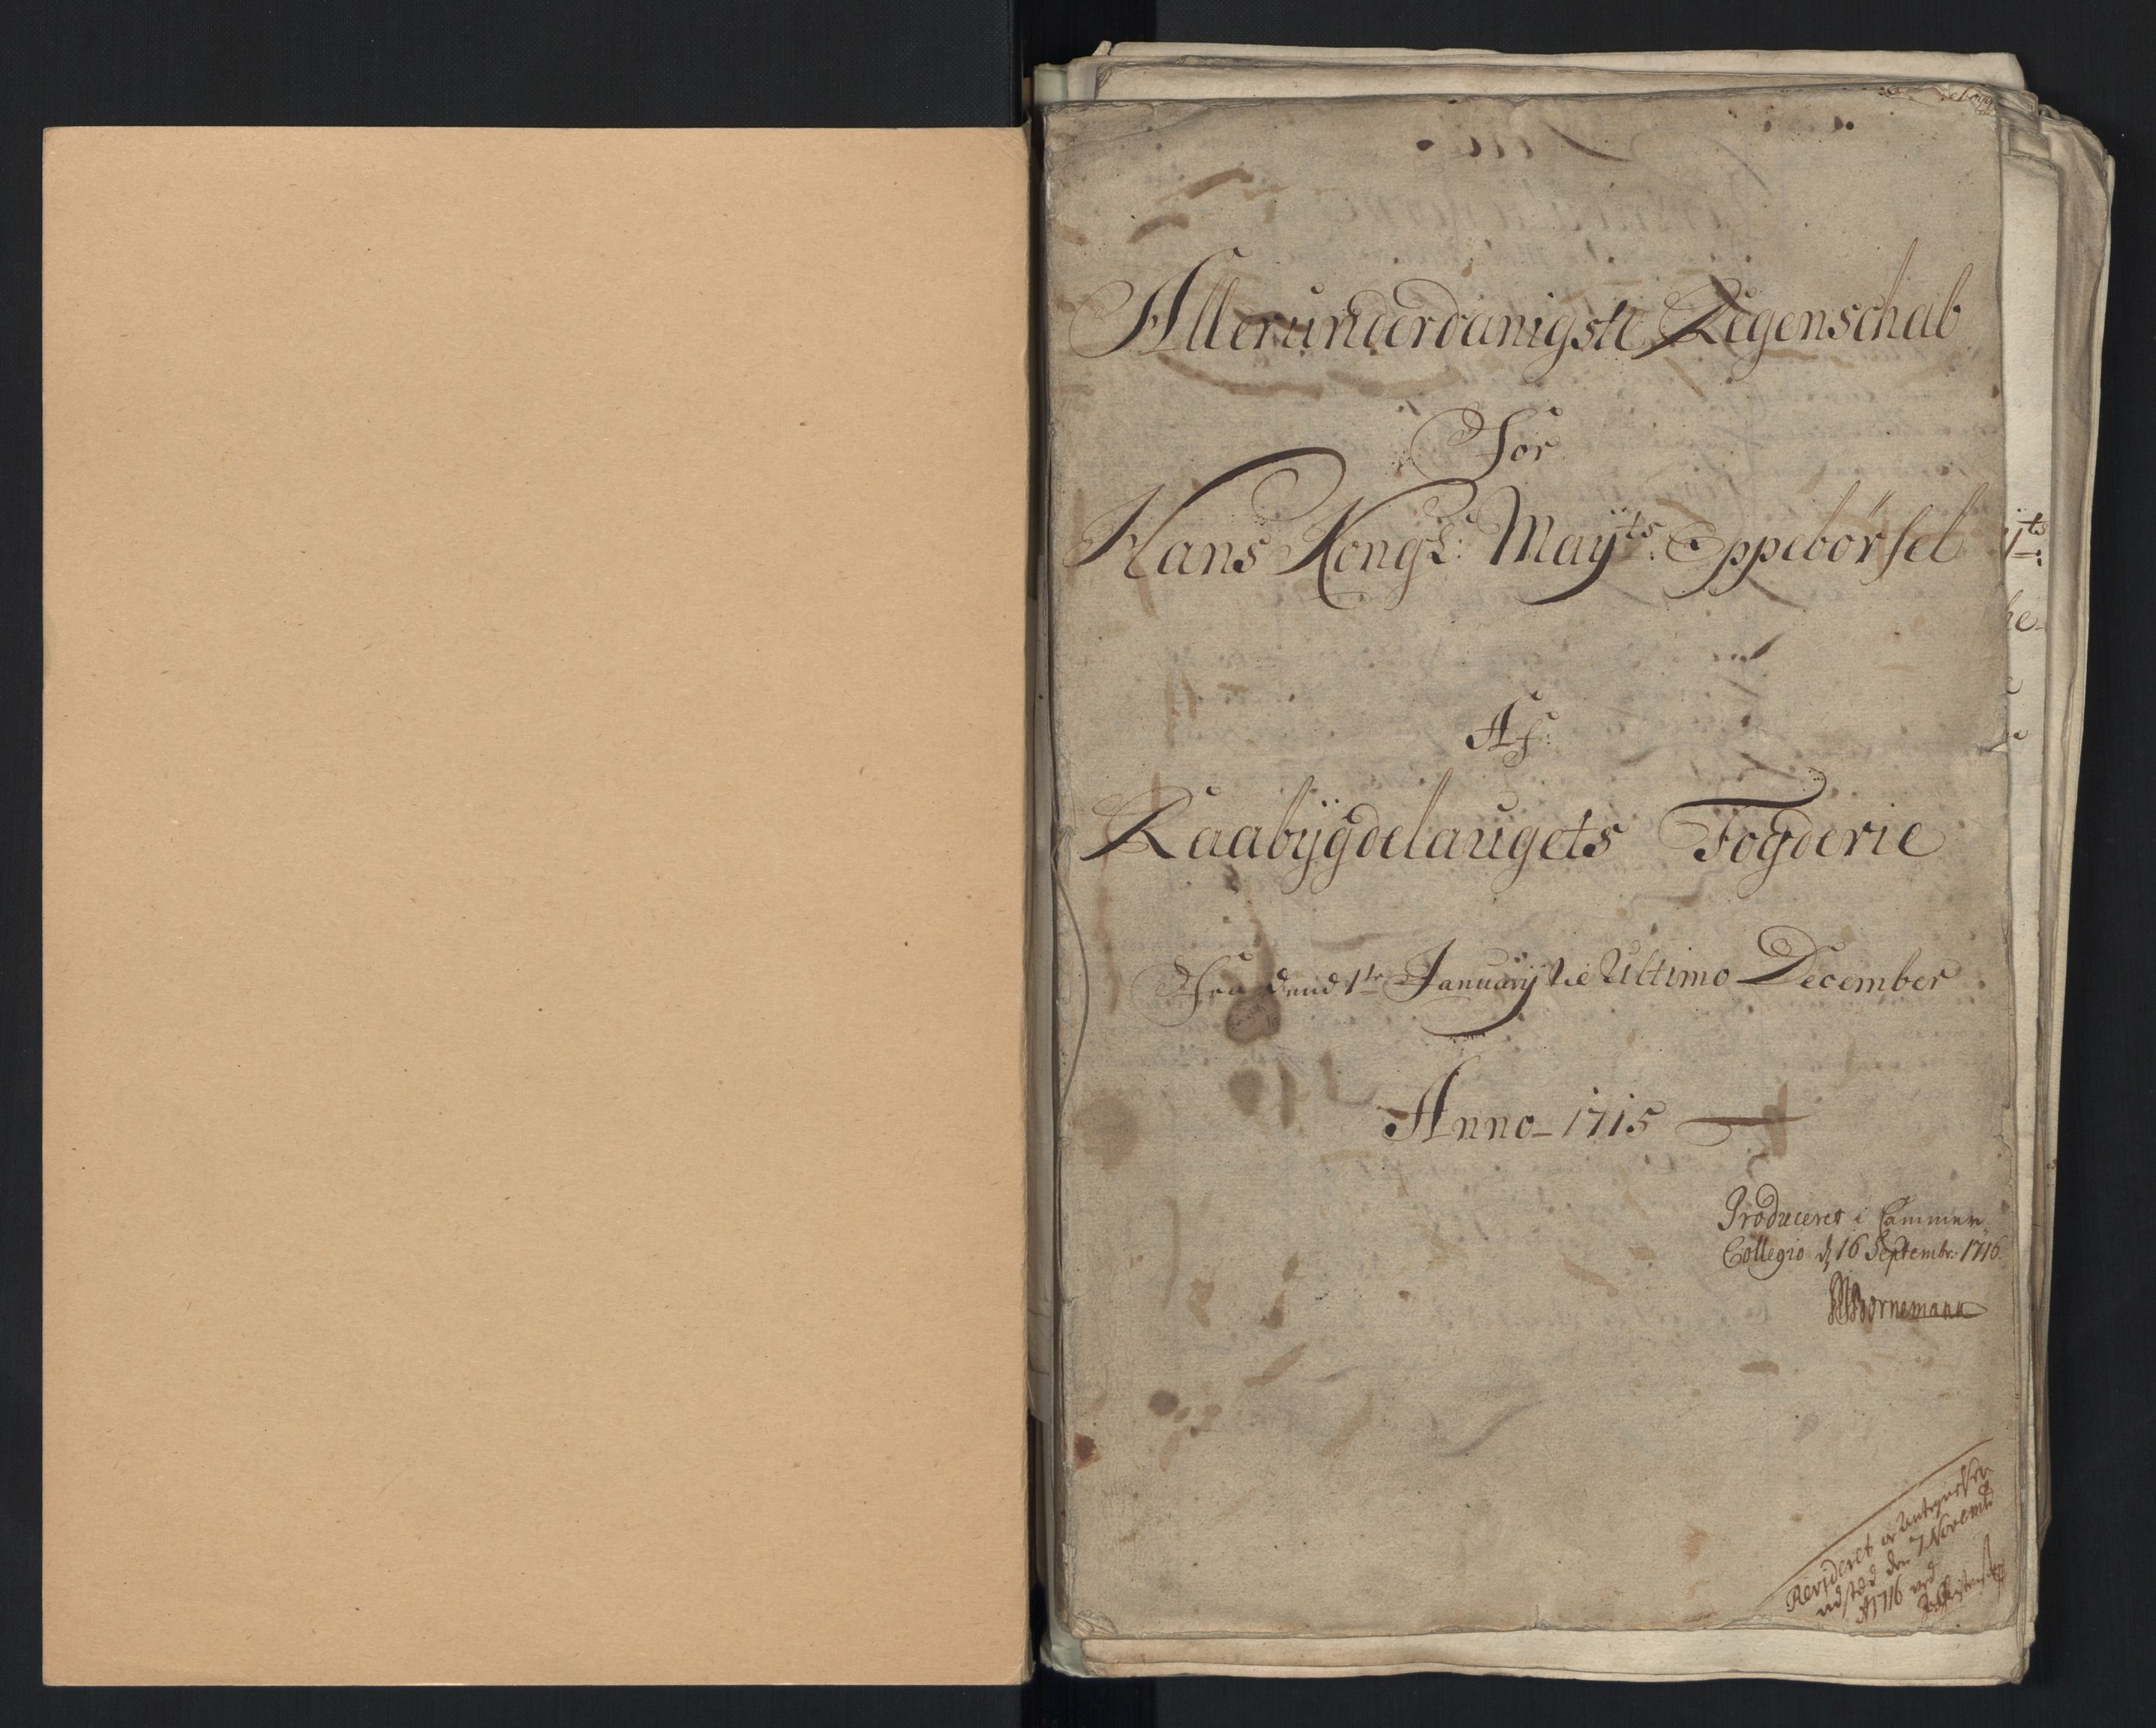 Allerunderdanigste Regenschab
For
Hans Kongl: Mayts: Oppebørsel
Af:
Raabÿgdelaugets Fogderie
Fra dend 1te Januarÿ til Ultimo December
Anno 1715
Produceret i Cammer
Collegio d 16 Septembr: 1716
Bornemann
Revideret og
udsted den 7 Novemb
A 1716 ved